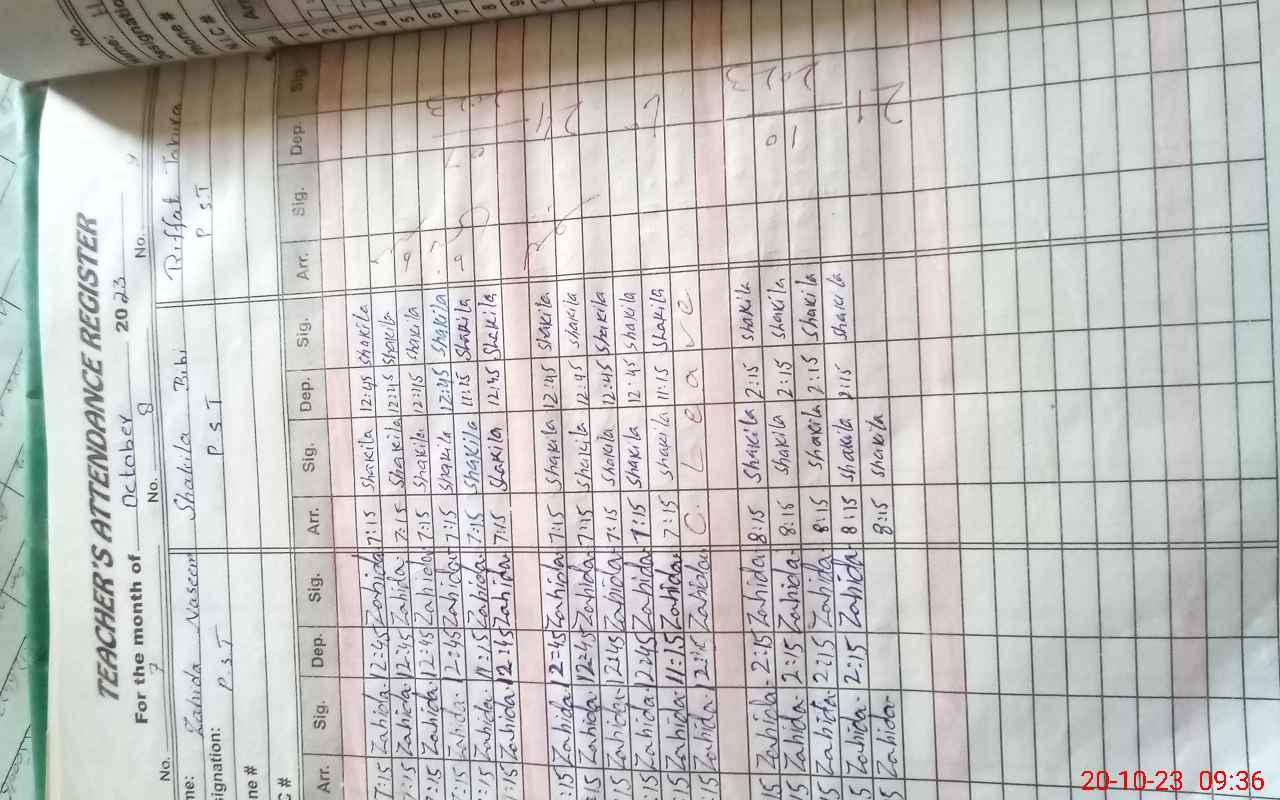 TEACHER'S ATTENDANCE REGISTER
For the month of October 2023
No. 7 No. 8 No. 9
me: Zahida Naseem Shakila Bibi Riffat
signation: P.S.T P S T P S.T
ne #
C #
Arr. Sig. Dep. Sig. Arr. Sig. Dep. Sig. Arr. Sig. Dep. Sig.
7:15 Zahida 12:45 Zahida 7:15 Shakila 12:45 Shakila
7:15 Zahida 12:45 Zahida 7:15 Shakila 12:45 Shakila
7:15 Zahida 12:45 Zahida 7:15 Shakila 12:45 Shakila
7:15 Zahida 12:45 Zahida 7:15 Shakila 12:45 Shakila
7:15 Zahida 11:15 Zahida 7:15 Shakila 11:15 Shakila
7:15 Zahida 12:45 Zahida 7:15 Shakila 12:45 Shakila
:15 Zahida 12:45 Zahida 7:15 Shakila 12:45 Shakila
:15 Zahida 12:45 Zahida 7:15 Shakila 12:45 Shakila
:15 Zahida 12:45 Zahida 7:15 Shakila 12:45 Shakila
:15 Zahida 12:45 Zahida 7:15 Shakila 12:45 Shakila
15 Zahida 11:15 Zahida 7:15 Shakila 11:15 Shakila
15 Zahida Zahida C. Leave
15 Zahida 2:15 Zahida 8:15 Shakila 2:15 Shakila
15 Zahida 2:15 Zahida 8:15 Shakila 2:15 Shakila
15 Zahida 2:15 Zahida 8:15 Shakila 2:15 Shakila
5 Zahida 2:15 Zahida 8:15 Shakila 2:15 Shakila
5 Zahida 8:15 Shakila
No.
ame:
esignatio
hone #
N.I.C #
Arr
1
2
3
4
5
6
7
8
9
20-10-23 09:36